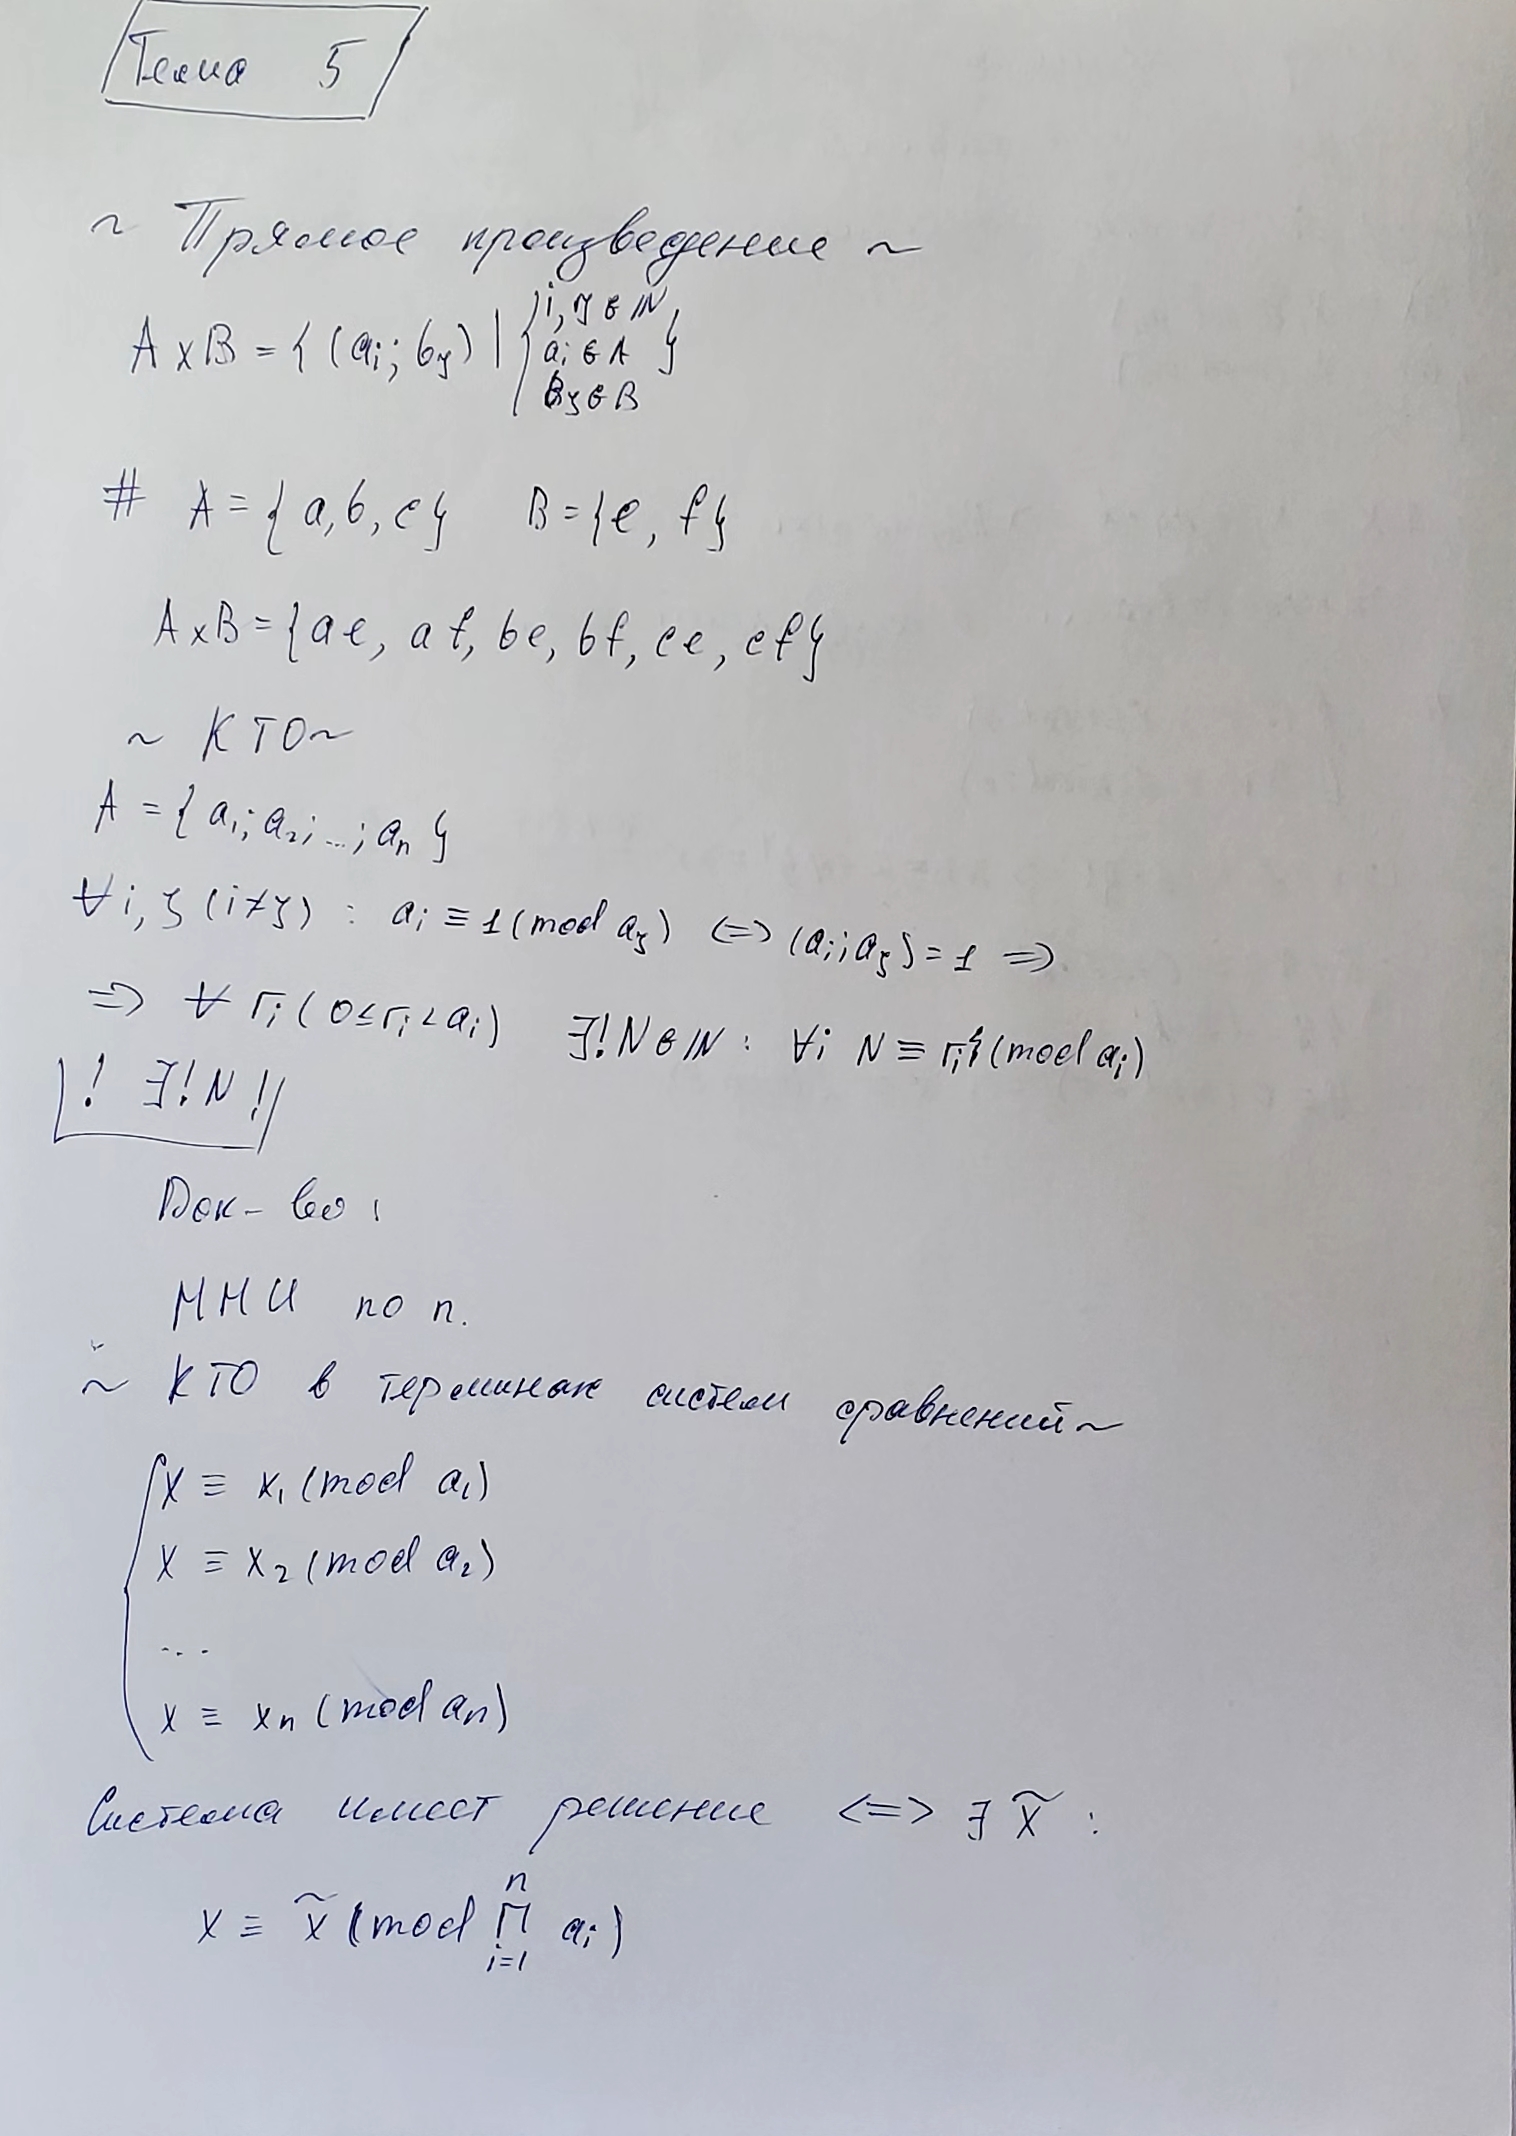 Тема 5
~ Прямое произведение ~
A x B = { (aᵢ; bⱼ) | { i, j ∈ ℕ
aᵢ ∈ A }
bⱼ ∈ B
# A = {a, b, c} B = {e, f}
A x B = {ae, af, be, bf, ce, cf}
~ КТО ~
A = {a₁; a₂; ...; aₙ}
∀ i, j (i ≠ j) : aᵢ ≡ 1 (mod aⱼ) <=> (aᵢ; aⱼ) = 1 =>
=> ∀ rᵢ (0 ≤ rᵢ < aᵢ) ∃! N ∈ ℕ : ∀i N ≡ rᵢ (mod aᵢ)
! ∃! N !
Док-во :
ММИ по n.
~ КТО в терминах систем сравнений ~
{ x ≡ x₁ (mod a₁)
x ≡ x₂ (mod a₂)
...
x ≡ xₙ (mod aₙ)
Система имеет решение <=> ∃ x̃ :
x ≡ x̃ (mod ∏ᵢ₌₁ⁿ aᵢ)